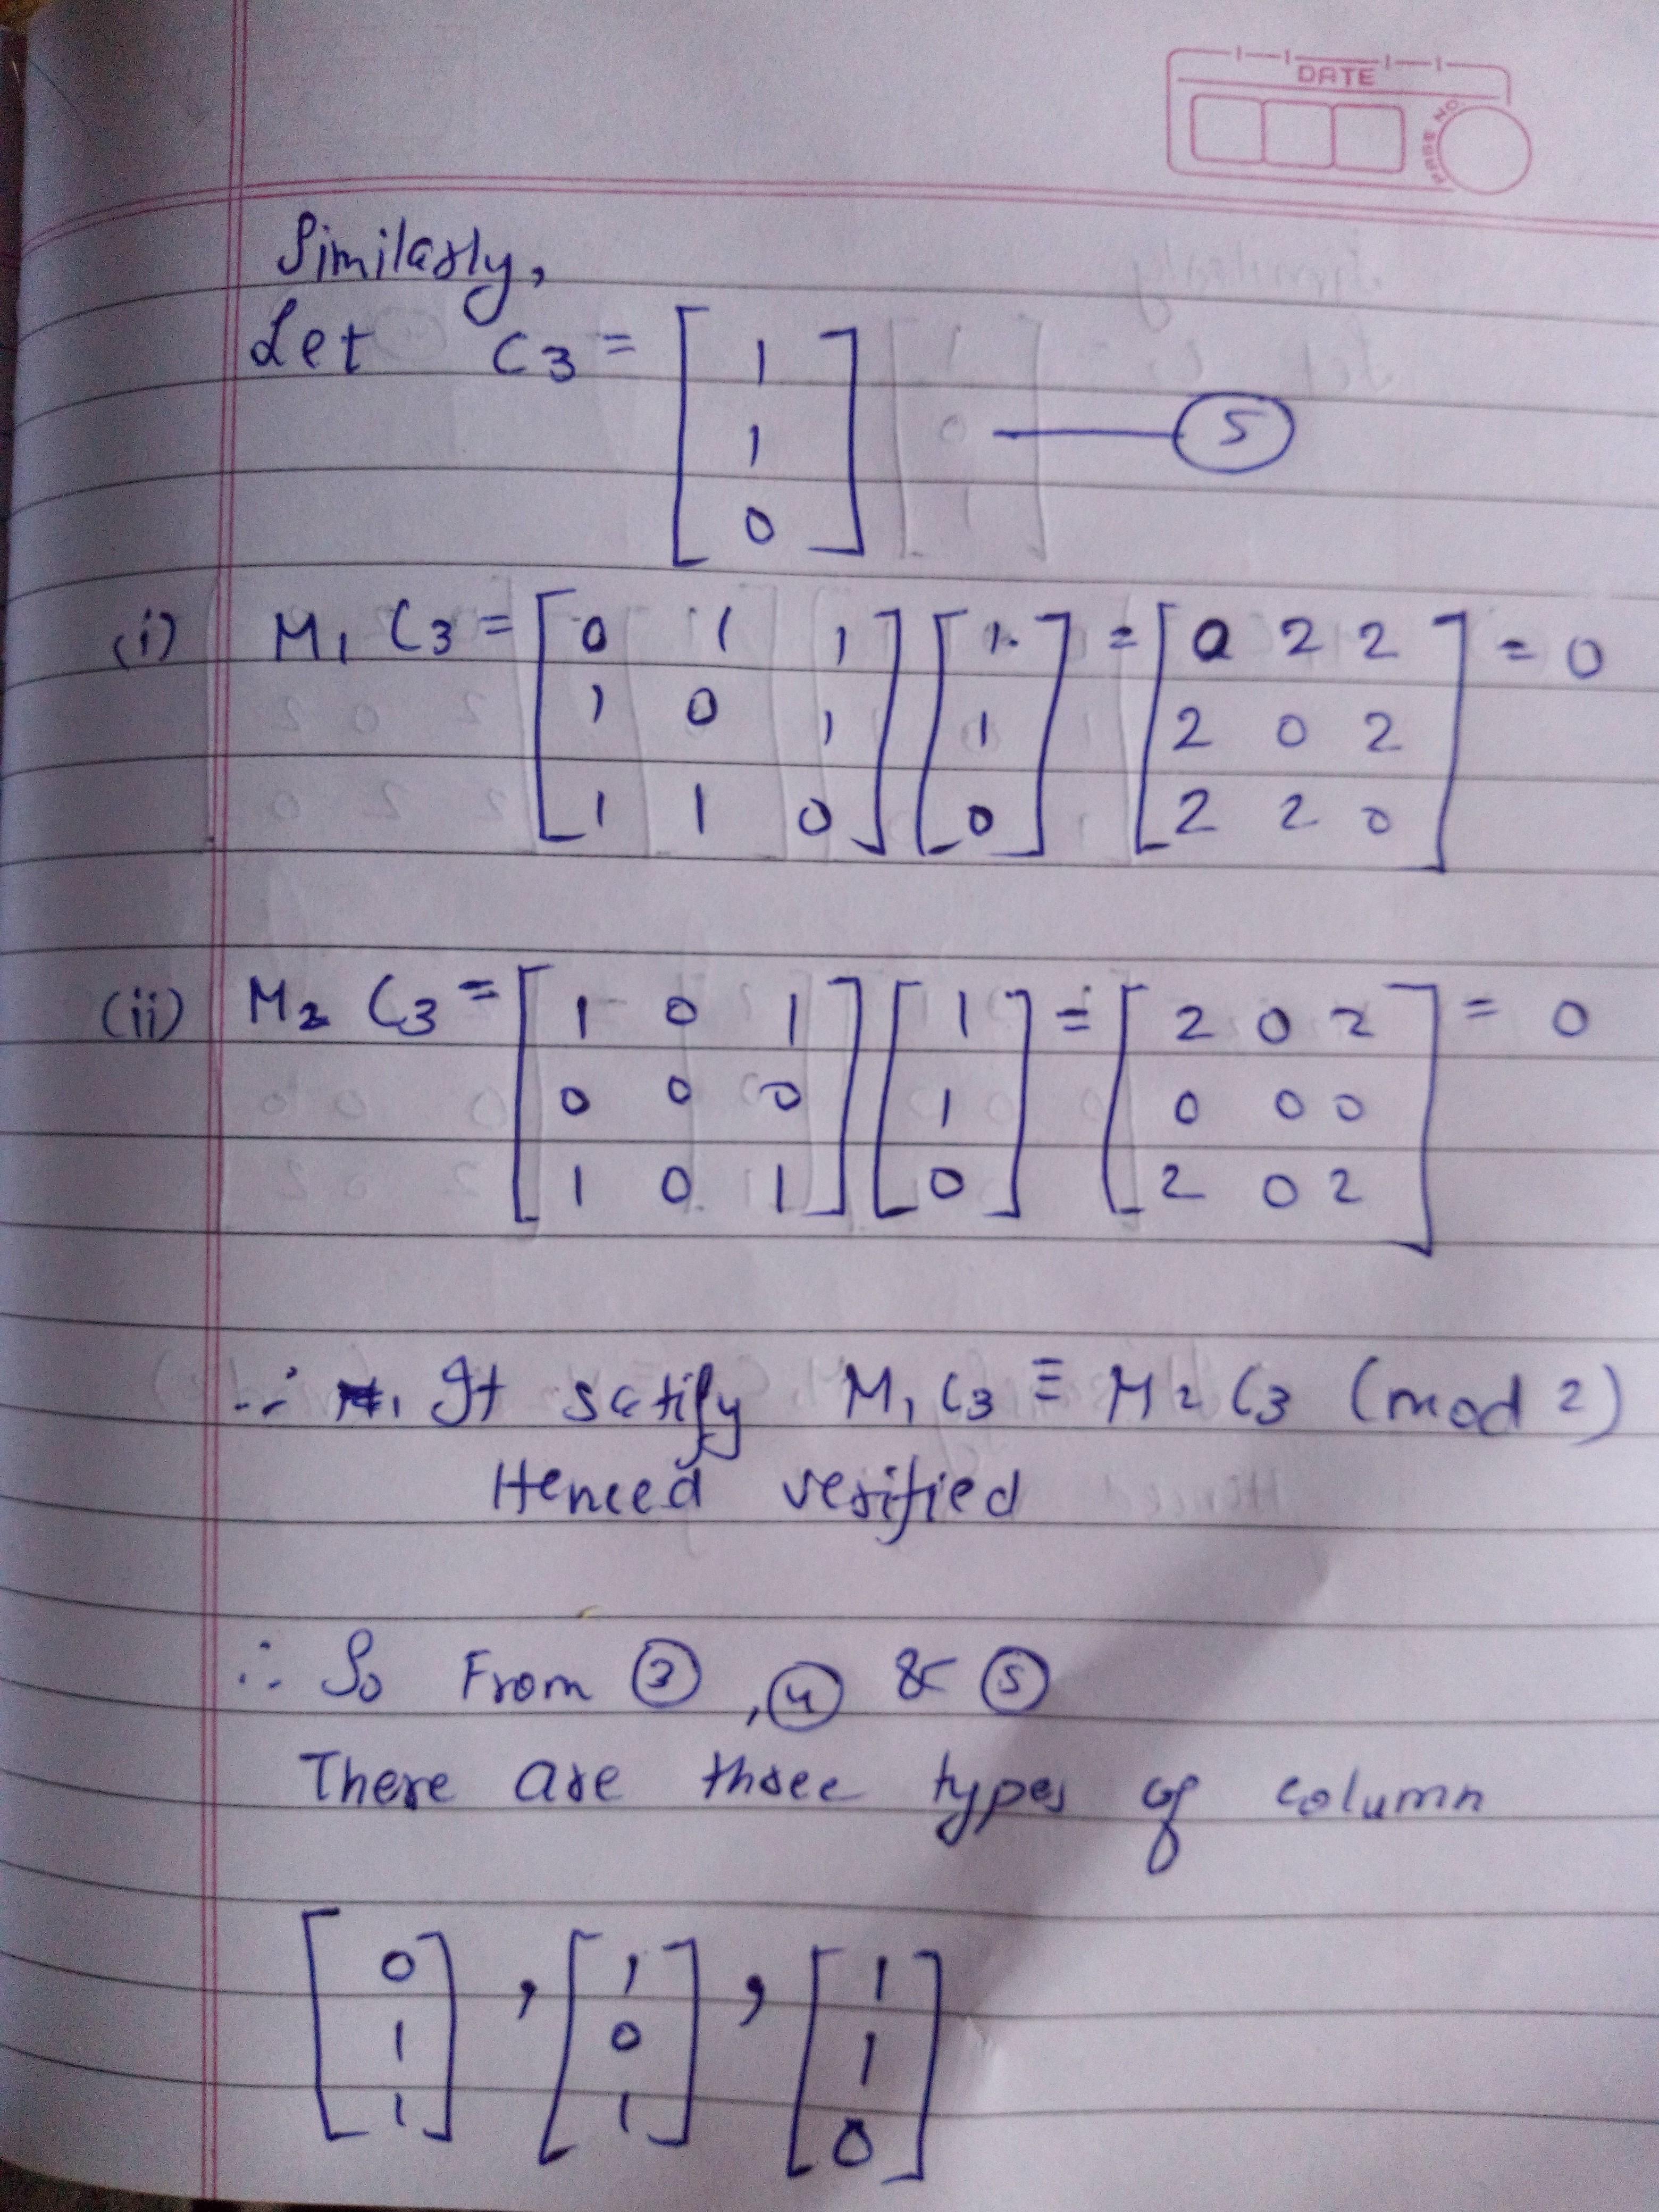 DATE
PAGE NO
Similarly,
Let C3 = [ 1 1 0 ] — 5
(i) M1 C3 = [ 0 1 1
1 0 1
1 1 0 ] [ 1
1
0 ] = [ 0 2 2
2 0 2
2 2 0 ] = 0
(ii) M2 C3 = [ 1 0 1
0 0 0
1 0 1 ] [ 1
1
0 ] = [ 2 0 2
0 0 0
2 0 2 ] = 0
∴ It satify M1 C3 ≡ M2 C3 (mod 2)
Henced verified
∴ So From 3, 4 & 5
There are three types of column
[ 0
1
1 ] , [ 1
0
1 ] , [ 1
1
0 ]